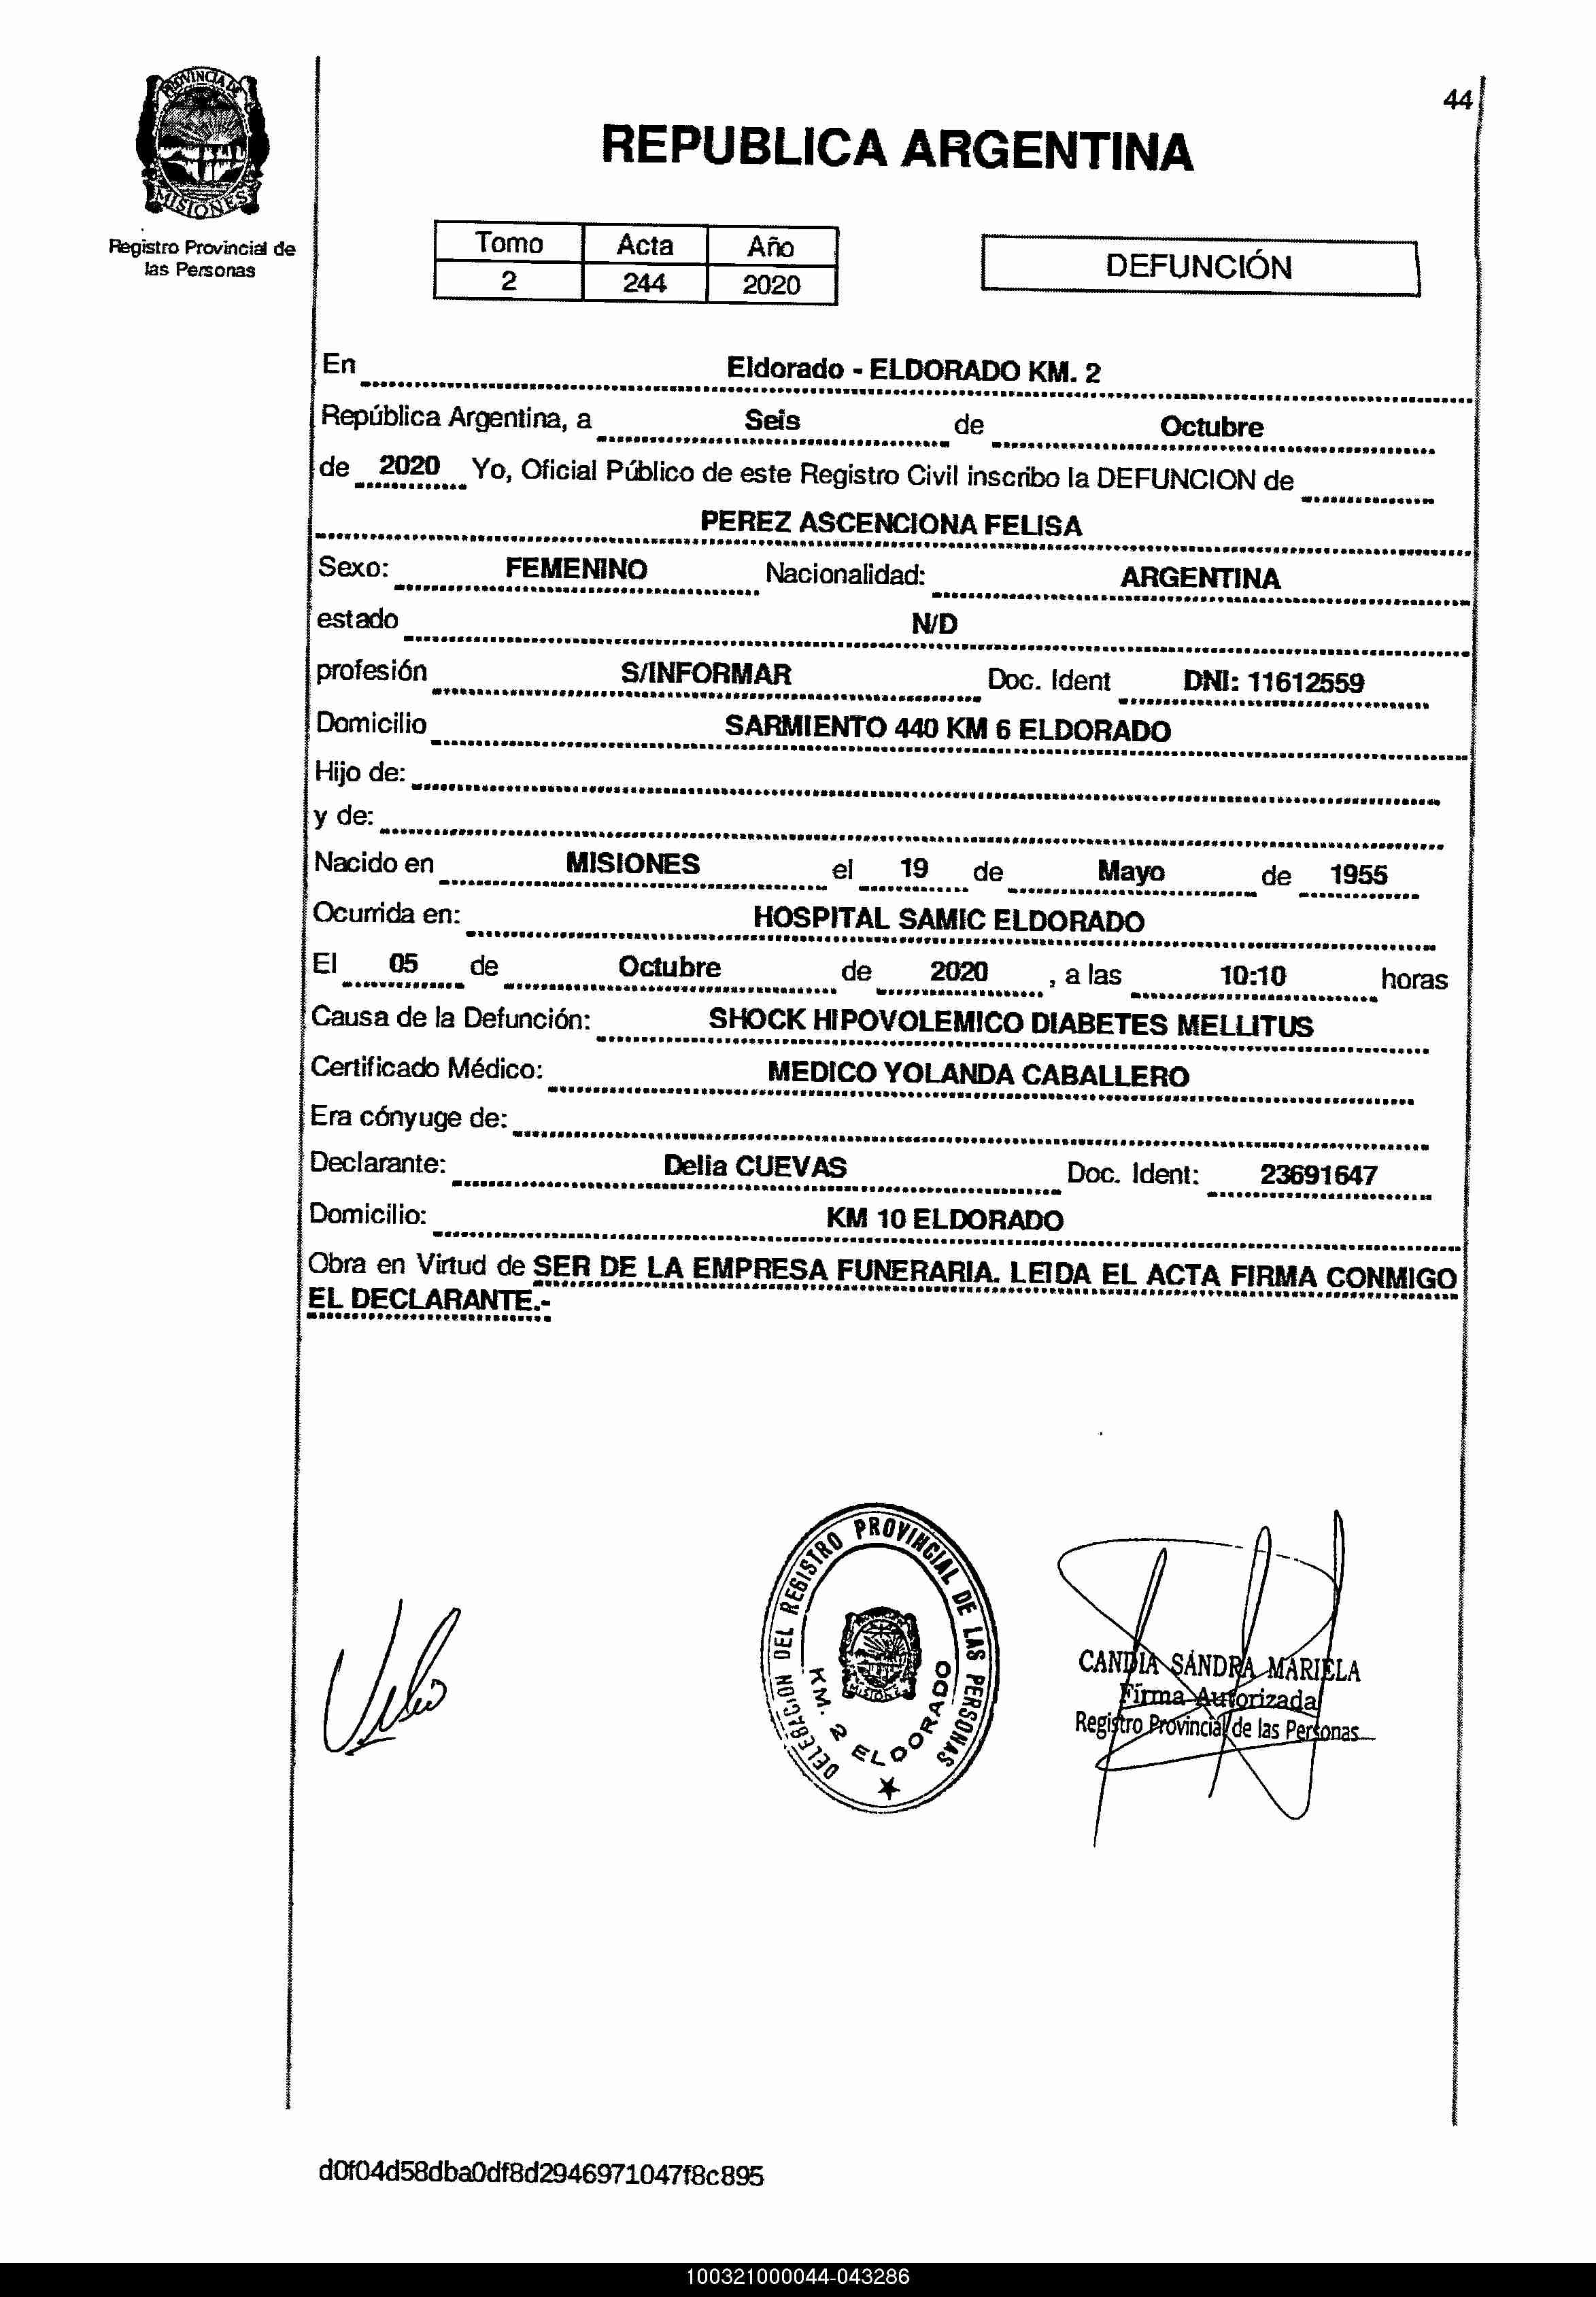 PROVINCIA DE
MISIONES
Registro Provincial de
las Personas
44
REPUBLICA ARGENTINA
Tomo Acta Año
2 244 2020
DEFUNCIÓN
En Eldorado - ELDORADO KM. 2
República Argentina, a Seis de Octubre
de 2020 Yo, Oficial Público de este Registro Civil inscribo la DEFUNCION de
PEREZ ASCENCIONA FELISA
Sexo: FEMENINO Nacionalidad: ARGENTINA
estado N/D
profesión S/INFORMAR Doc. Ident DNI: 11612559
Domicilio SARMIENTO 440 KM 6 ELDORADO
Hijo de:
y de:
Nacido en MISIONES el 19 de Mayo de 1955
Ocurrida en: HOSPITAL SAMIC ELDORADO
El 05 de Octubre de 2020 , a las 10:10 horas
Causa de la Defunción: SHOCK HIPOVOLEMICO DIABETES MELLITUS
Certificado Médico: MEDICO YOLANDA CABALLERO
Era cónyuge de:
Declarante: Delia CUEVAS Doc. Ident: 23691647
Domicilio: KM 10 ELDORADO
Obra en Virtud de SER DE LA EMPRESA FUNERARIA. LEIDA EL ACTA FIRMA CONMIGO
EL DECLARANTE.-
DELEGACION DEL REGISTRO PROVINCIAL DE LAS PERSONAS
MISIONES
KM. 2 ELDORADO
CANDIA SANDRA MARIELA
Firma Autorizada
Registro Provincial de las Personas
d0f04d58dba0df8d2946971047f8c895
100321000044-043286